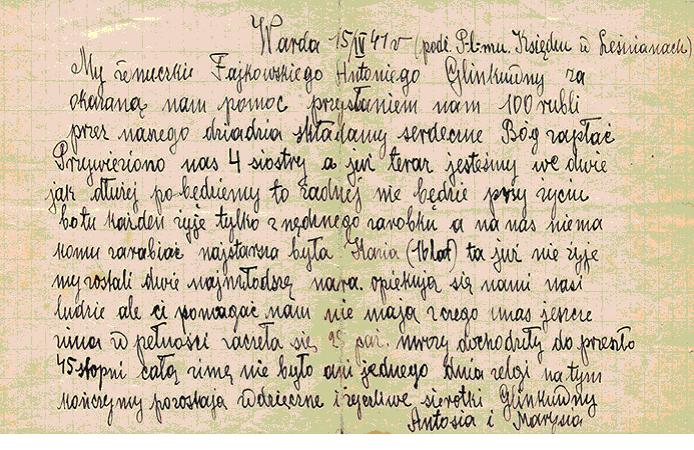 Warda 15/IV 41 r (podz. P.l.mu. Księdzu w Leśnianach)
My Fajkowskiego Antoniego Glinkówny za
okazaną nam pomoc przysłaniem nam 100 rubli
przez naszego dziadzia składamy serdeczne Bóg zapłać
Przywieziono nas 4 siostry a już teraz jesteśmy we dwie
jak dłużej pobędziemy to żadnej nie będzie przy życiu
bo tu każden żyje tylko z nędznego zarobku a na nas niema
komu zarabiać najstarsza była (16 lat) ta już nie żyje
my zostali dwie najmłodsze nara. opiekują się nami nasi
ludzie ale ci pomagać nam nie mają z czego u nas jeszcze
zima w pełności zaczęła się 25 paź. mrozy dochodziły do przeszło
45 stopni całą zimę nie było ani jednego dnia na tym
kończymy pozostają wdzięczne i życzliwe sierotki Glinkówny
Antosia i Marysia